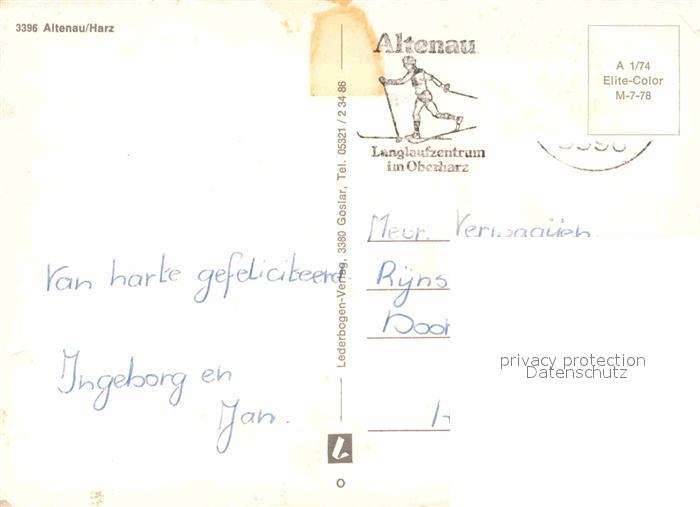 3396 Altenau/Harz
Van harte gefeliciteerd.
Ingeborg en
Jan.
Lederbogen-Verlag, 3380 Goslar, Tel. 05321 / 2 34 86
L
O
Altenau
Langlaufzentrum
im Oberharz
3396
A 1/74
Elite-Color
M-7-78
Mevr.
Rijns
Door
privacy protection
Datenschutz